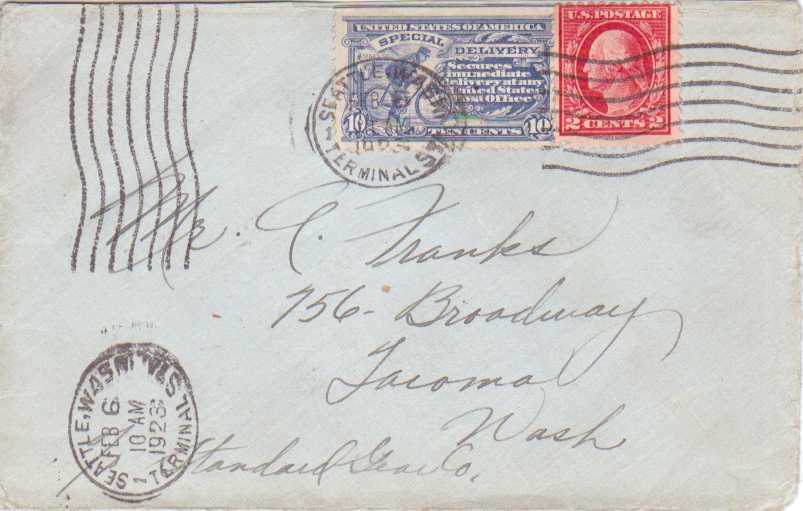 UNITED STATES OF AMERICA
SPECIAL DELIVERY
Secures
immediate
delivery at any
United States
Post Office
10 TEN CENTS 10
U.S. POSTAGE
2 CENTS 2
SEATTLE, WASH.
FEB 6
1923
1 TERMINAL STA.
Mr. C. Franks
756- Broadway
Tacoma
Wash
Standard Gear Co.
SEATTLE, WASH.
FEB 6
10 AM
1923
1 TERMINAL STA.